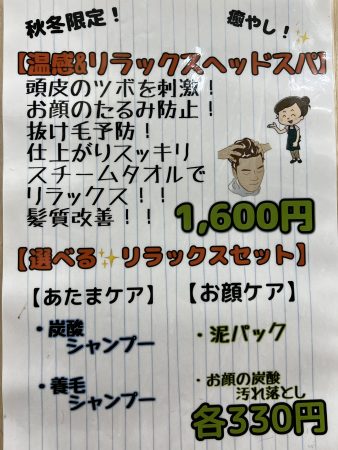 秋冬限定！
癒やし！
【温感&リラックスヘッドスパ】
頭皮のツボを刺激！
お顔のたるみ防止！
抜け毛予防！
仕上がりスッキリ
スチームタオルで
リラックス！！
髪質改善！！
1,600円
【選べる✨リラックスセット】
【あたまケア】
・炭酸
シャンプー
・養毛
シャンプー
【お顔ケア】
・泥パック
・お顔の炭酸
汚れ落とし
各330円